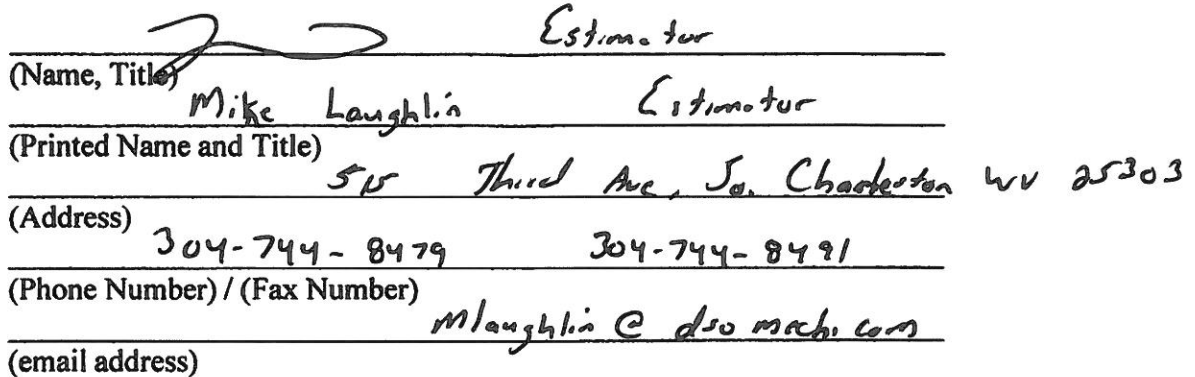 Estimator
(Name, Title)
Mike Laughlin Estimator
(Printed Name and Title)
515 Third Ave, So. Charleston WV 25303
(Address)
304-744-8479 304-744-8491
(Phone Number) / (Fax Number)
Mlaughlin @ dso mech. com
(email address)